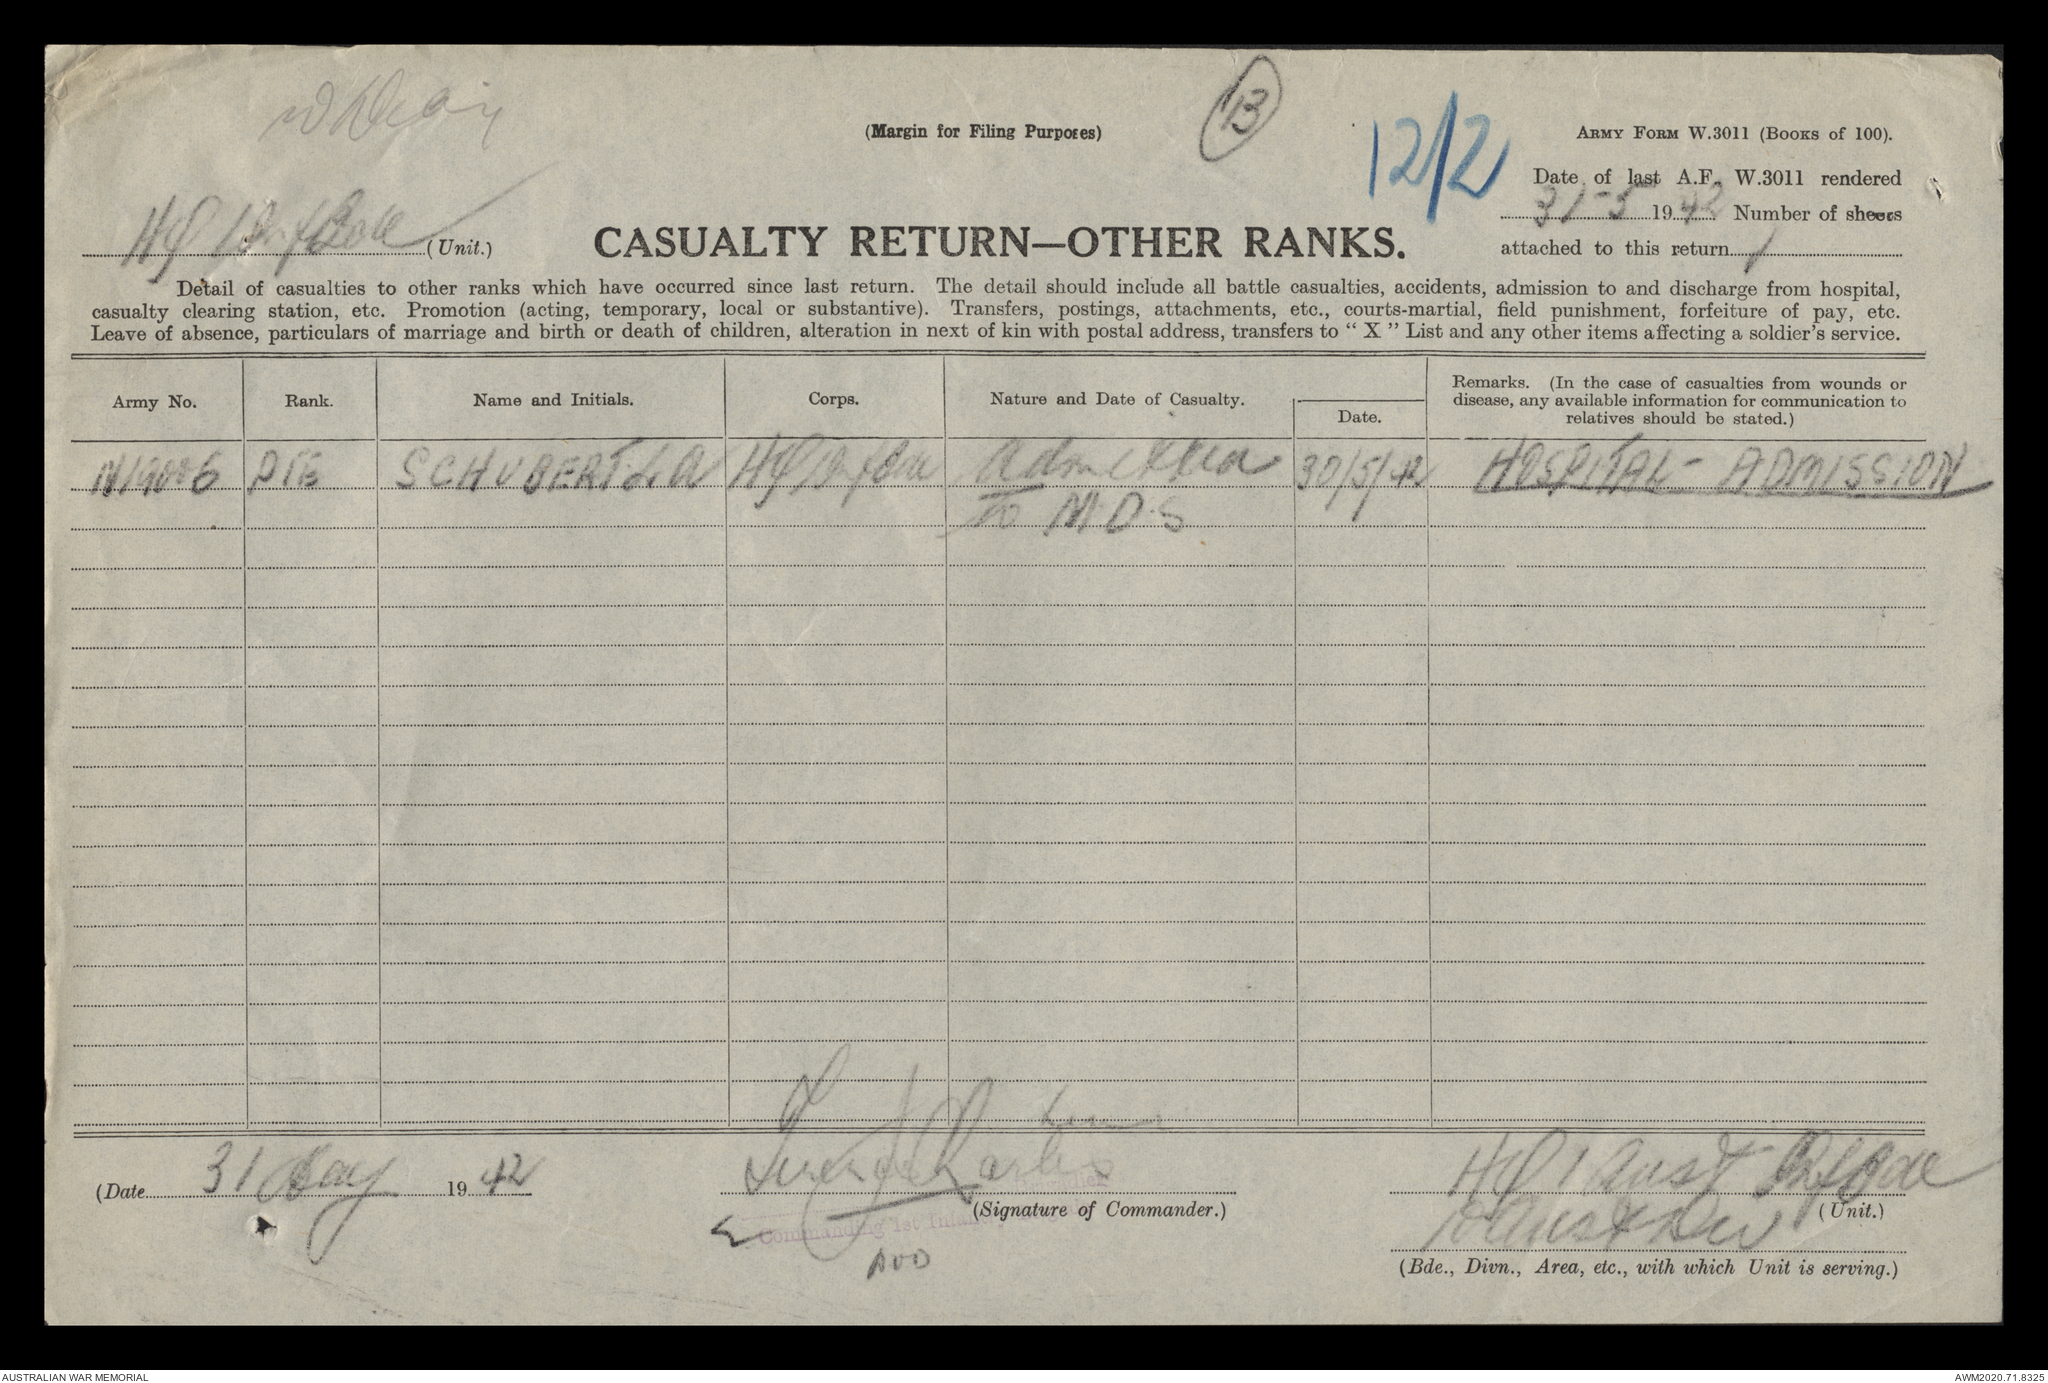 W Diary
(Margin for Filing Purposes)
13
12/2
ARMY FORM W.3011 (BOOKS of 100).
Date of last A.F. W.3011 rendered
31-5 1942 Number of sheets
HQ 1 Inf Bde (Unit.)
CASUALTY RETURN—OTHER RANKS.
attached to this return 1
Detail of casualties to other ranks which have occurred since last return. The detail should include all battle casualties, accidents, admission to and discharge from hospital,
casualty clearing station, etc. Promotion (acting, temporary, local or substantive). Transfers, postings, attachments, etc., courts-martial, field punishment, forfeiture of pay, etc.
Leave of absence, particulars of marriage and birth or death of children, alteration in next of kin with postal address, transfers to “ X ” List and any other items affecting a soldier's service.
Army No. Rank. Name and Initials. Corps. Nature and Date of Casualty. Date. Remarks. (In the case of casualties from wounds or
disease, any available information for communication to
relatives should be stated.)
PTE SCHUBERT HQ 1 Inf Bde Admitted 30/5/42 HOSPITAL - ADMISSION
to M.D.S
(Date 31 May 19 42
(Signature of Commander.)
Commanding 1st
HQ 1 Aust Inf Bde
(Unit.)
1 Aust Div
(Bde., Divn., Area, etc., with which Unit is serving.)
AUSTRALIAN WAR MEMORIAL
AWM2020.71.8325